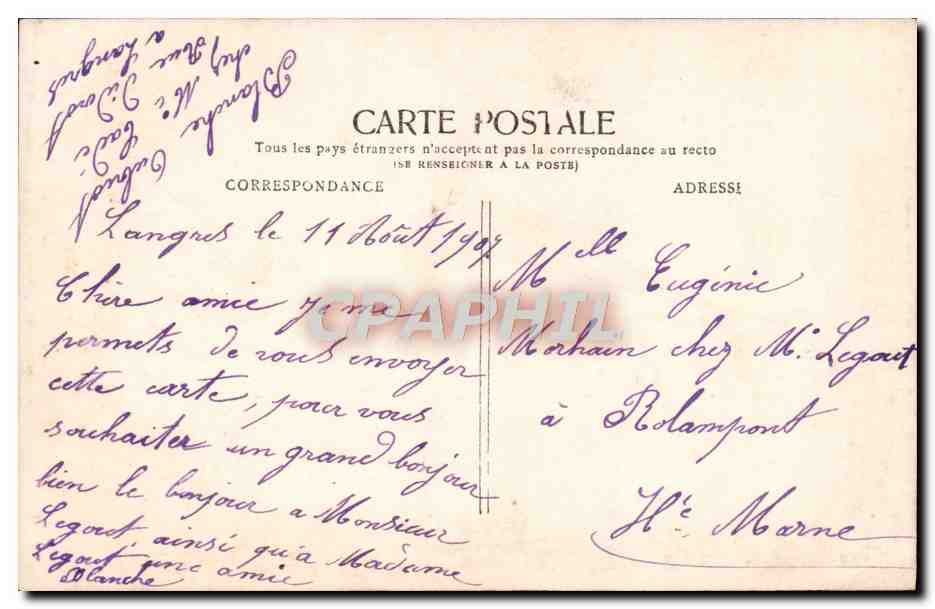 CARTE POSTALE
Tous les pays étrangers n'acceptent pas la correspondance au recto
(SE RENSEIGNER A LA POSTE)
CORRESPONDANCE
ADRESSE
Langres le 11 Août 1907
Chère amie Je me
permets de vous envoyer
cette carte, pour vous
souhaiter un grand bonjour
bien le bonjour a Monsieur
Legout, ainsi qu'a Madame
Legout une amie
Blanche
Mlle Eugénie
Morhain chez M. Legout
à Rolampont
Hte Marne
Blanche
chez Mr
Rue Diderot
a Langres
CPAPHIL